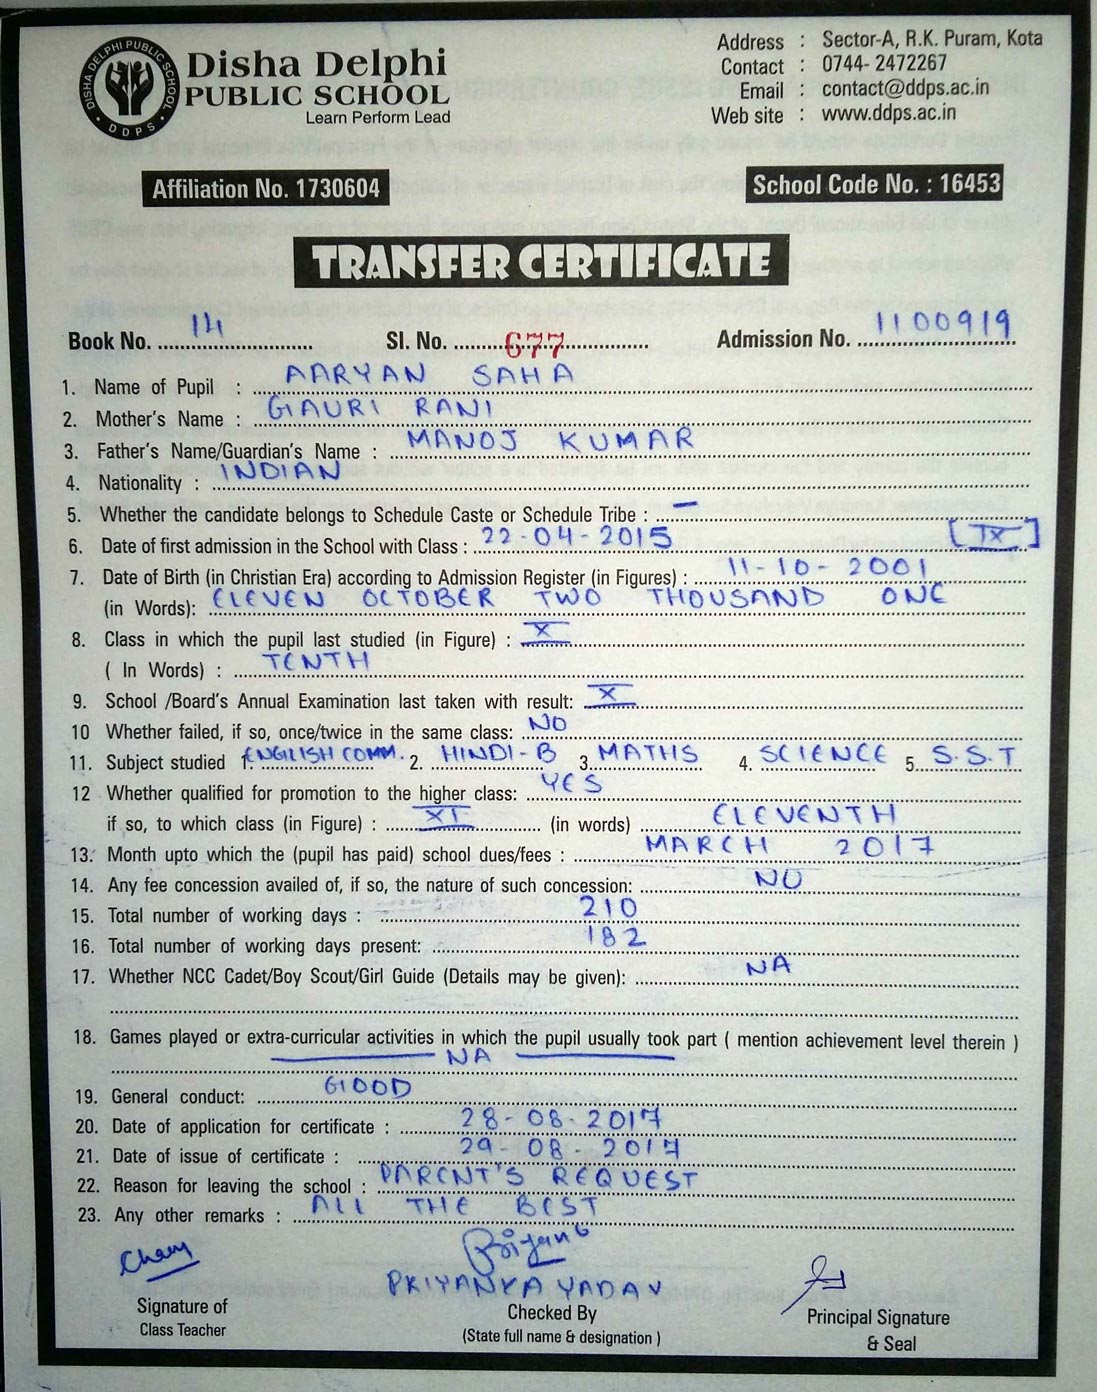 DISHA DELPHI PUBLIC SCHOOL
DDPS
Disha Delphi
PUBLIC SCHOOL
Learn Perform Lead
Address : Sector-A, R.K. Puram, Kota
Contact : 0744- 2472267
Email : contact@ddps.ac.in
Web site : www.ddps.ac.in
Affiliation No. 1730604
School Code No. : 16453
TRANSFER CERTIFICATE
Book No. 14 Sl. No. 677 Admission No. 1100919
1. Name of Pupil : AARYAN SAHA
2. Mother's Name : GAURI RANI
3. Father's Name/Guardian's Name : MANOJ KUMAR
4. Nationality : INDIAN
5. Whether the candidate belongs to Schedule Caste or Schedule Tribe : –
6. Date of first admission in the School with Class : 22-04-2015 [IX]
7. Date of Birth (in Christian Era) according to Admission Register (in Figures) : 11-10-2001
(in Words): ELEVEN OCTOBER TWO THOUSAND ONE
8. Class in which the pupil last studied (in Figure) : X
( In Words) : TENTH
9. School /Board's Annual Examination last taken with result: X
10 Whether failed, if so, once/twice in the same class: NO
11. Subject studied 1. ENGLISH COMM. 2. HINDI-B 3. MATHS 4. SCIENCE 5. S.S.T
12 Whether qualified for promotion to the higher class: YES
if so, to which class (in Figure) : XI (in words) ELEVENTH
13. Month upto which the (pupil has paid) school dues/fees : MARCH 2017
14. Any fee concession availed of, if so, the nature of such concession: NO
15. Total number of working days : 210
16. Total number of working days present: 182
17. Whether NCC Cadet/Boy Scout/Girl Guide (Details may be given): NA
18. Games played or extra-curricular activities in which the pupil usually took part ( mention achievement level therein )
NA
19. General conduct: GOOD
20. Date of application for certificate : 28-08-2017
21. Date of issue of certificate : 29-08-2017
22. Reason for leaving the school : PARENT'S REQUEST
23. Any other remarks : ALL THE BEST
PRIYANKA YADAV
Signature of
Class Teacher
Checked By
(State full name & designation )
Principal Signature
& Seal